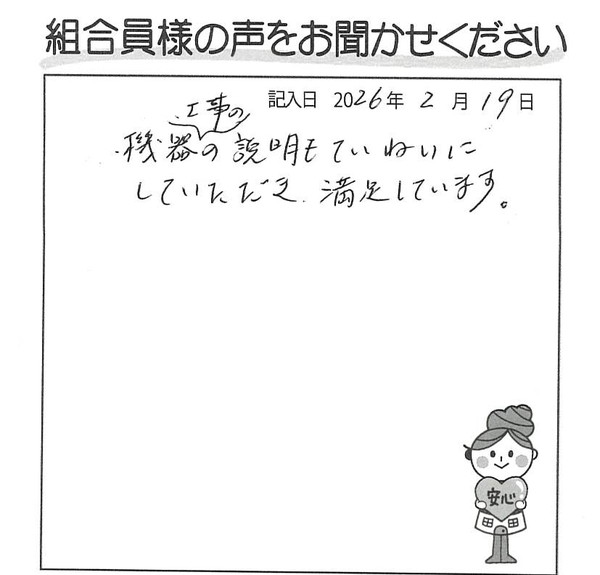 組合員様の声をお聞かせください
記入日 2026年 2月19日
・工事の
・機器の説明もていねいに
していただき、満足しています。
安心